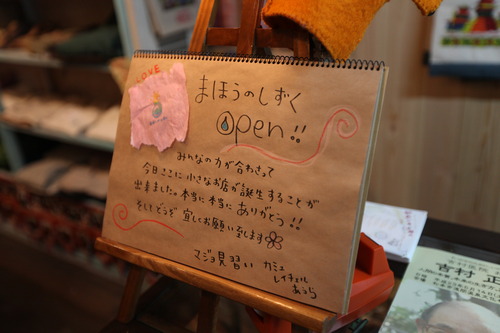 LOVE
まほうのしずく
open!!
みんなの力が合わさって
今日ここに小さなお店が誕生することが
出来ました。本当に本当にありがとう!!
そしてどうぞ宜しくお願い致します
マジョ見習い カミュ
レイチェル
あつら
吉村 正